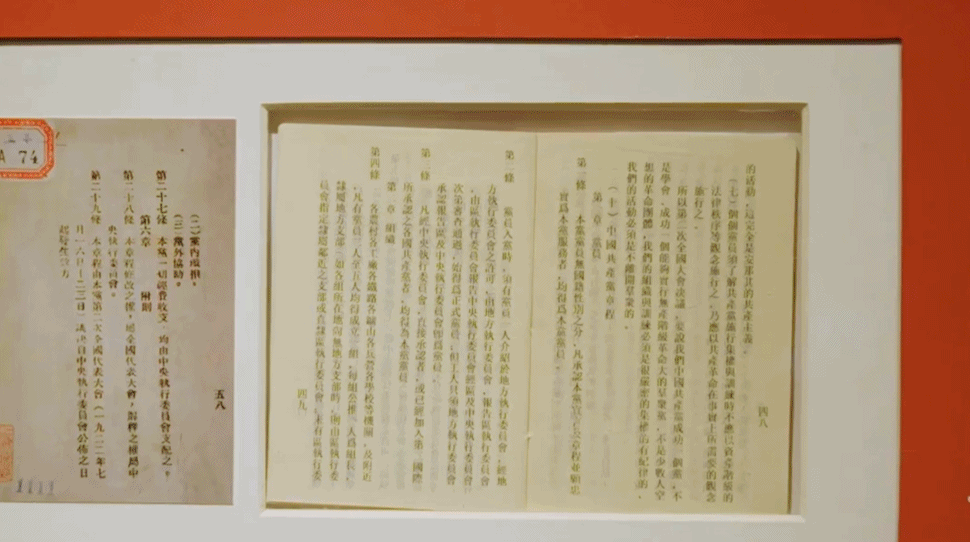 的活動，這完全是安那其的共產主義。
（七）個個黨員須了解共產黨施行集權與訓練時不應以資產階級的
法律秩序等觀念施行之，乃應以共產革命在事實上所需要的觀念
施行之。
所以第二次全國大會決議，要說我們中國共產黨成功一個黨，不
是學會，成功一個能夠實行無產階級革命大的羣眾黨，不是少數人空
想的革命團體，我們的組織與訓練必須是很嚴密的集權的有紀律的，
我們的活動必須是不離開羣眾的。
（十）中國共產黨章程
第一章 黨員
第一條 本黨黨員無國籍性別之分，凡承認本黨宣言及章程並願忠
實爲本黨服務者，均得爲本黨黨員。
四八
第二條 黨員入黨時，須有黨員一人介紹於地方執行委員會，經地
方執行委員會之許可，由地方執行委員會，報告區執行委員會
，由區執行委員會報告中央執行委員會經區及中央執行委員會
次第審查通過，始得爲正式黨員；但工人只須地方執行委員會
承認報告區及中央執行委員會即爲黨員。
第三條 凡經中央執行委員會，直接承認者，或已經加入第三國際
所承認之各國共產黨者，均得爲本黨黨員。
第二章 組織
第四條 各農村各工廠各鐵路各鑛山各兵營各學校等機關，及附近
，凡有黨員三人至五人均得成立一組，每組公推一人爲組長，
隸屬地方支部；如各組所在地尚無地方支部時，則由區執行委
員會指定隸屬鄰近之支部或直隸區執行委員會；未有區執行委
四九
（二）黨內義捐。
（三）黨外協助。
第二十七條 本黨一切經費收支，均由中央執行委員會支配之。
第六章 附則
第二十八條 本章程修改之權，屬全國代表大會，解釋之權屬中
央執行委員會。
第二十九條 本章程由本黨第二次全國代表大會（一九二二年七
月一六日—二三日）議決自中央執行委員會公佈之日
起發生效力
五八
A 74